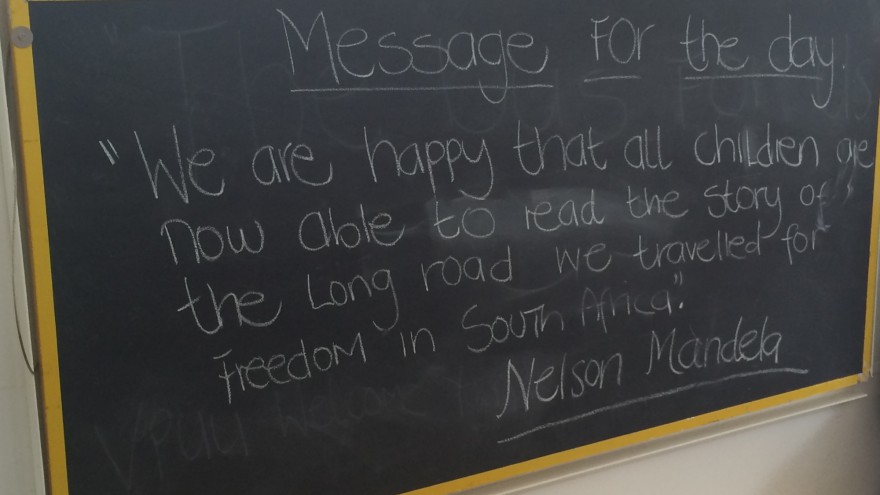 Message For the day.
"We are happy that all children are
now able to read the story of
the Long road we travelled for
freedom in South Africa".
Nelson Mandela